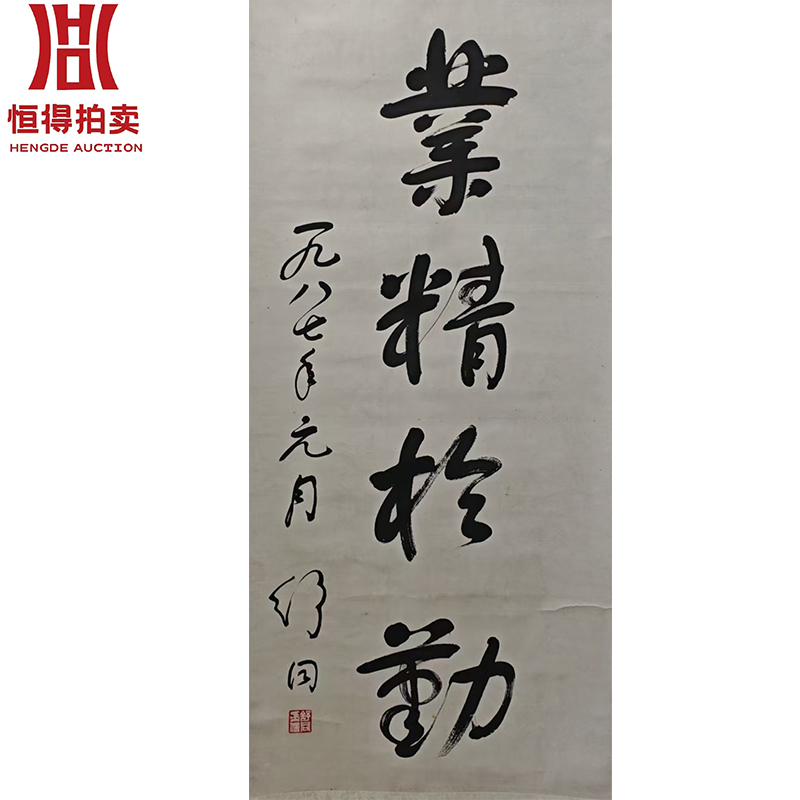 恒得拍卖
HENGDE AUCTION
業精於勤
一九八七年元月
舒同